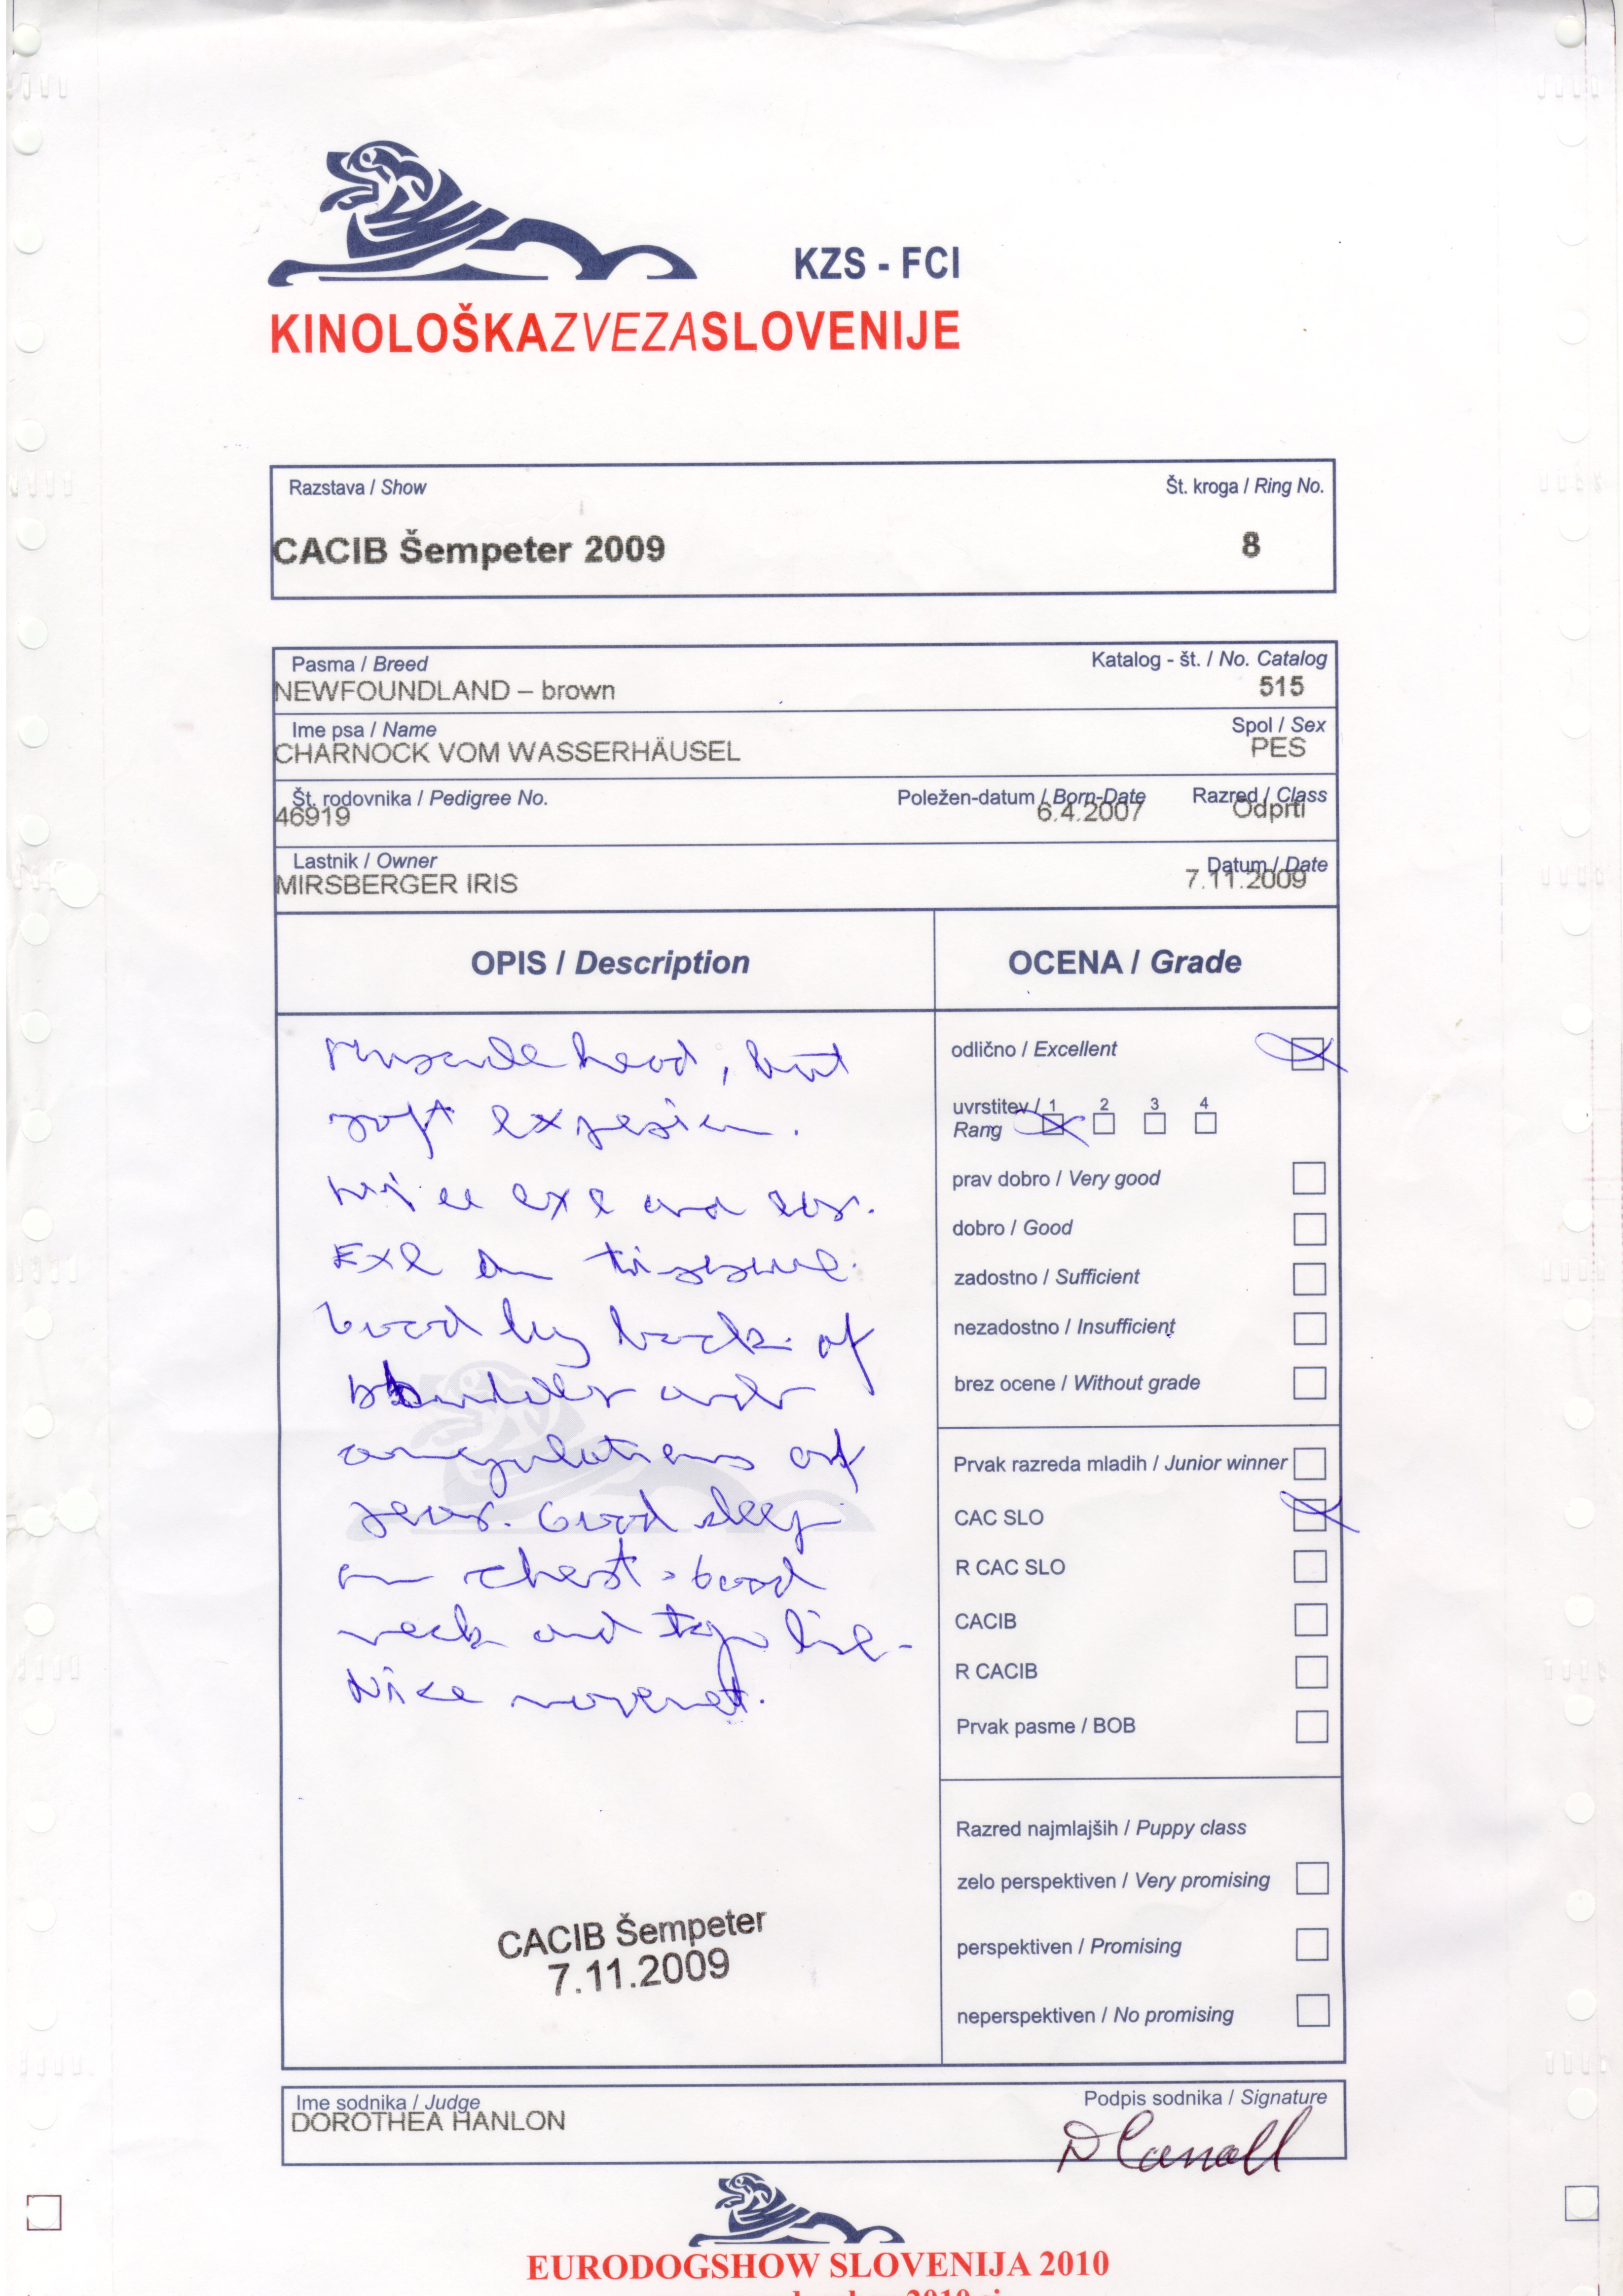 KZS - FCI
KINOLOŠKAZVEZASLOVENIJE
Razstava / Show
Št. kroga / Ring No.
CACIB Šempeter 2009
8
Pasma / Breed
Katalog - št. / No. Catalog
NEWFOUNDLAND – brown
515
Ime psa / Name
Spol / Sex
CHARNOCK VOM WASSERHÄUSEL
PES
Št. rodovnika / Pedigree No.
Poležen-datum / Born-Date
Razred / Class
46919
6.4.2007
Odprti
Lastnik / Owner
Datum / Date
MIRSBERGER IRIS
7.11.2009
OPIS / Description
OCENA / Grade
head, but
soft
exl and
Exl on
Good back of
and
angulations of
Good deep
chest. Good
neck and top line.
Nice
odlično / Excellent
uvrstitev / 1 2 3 4
Rang
prav dobro / Very good
dobro / Good
zadostno / Sufficient
nezadostno / Insufficient
brez ocene / Without grade
Prvak razreda mladih / Junior winner
CAC SLO
R CAC SLO
CACIB
R CACIB
Prvak pasme / BOB
Razred najmlajših / Puppy class
zelo perspektiven / Very promising
perspektiven / Promising
neperspektiven / No promising
CACIB Šempeter
7.11.2009
Ime sodnika / Judge
Podpis sodnika / Signature
DOROTHEA HANLON
EURODOGSHOW SLOVENIJA 2010